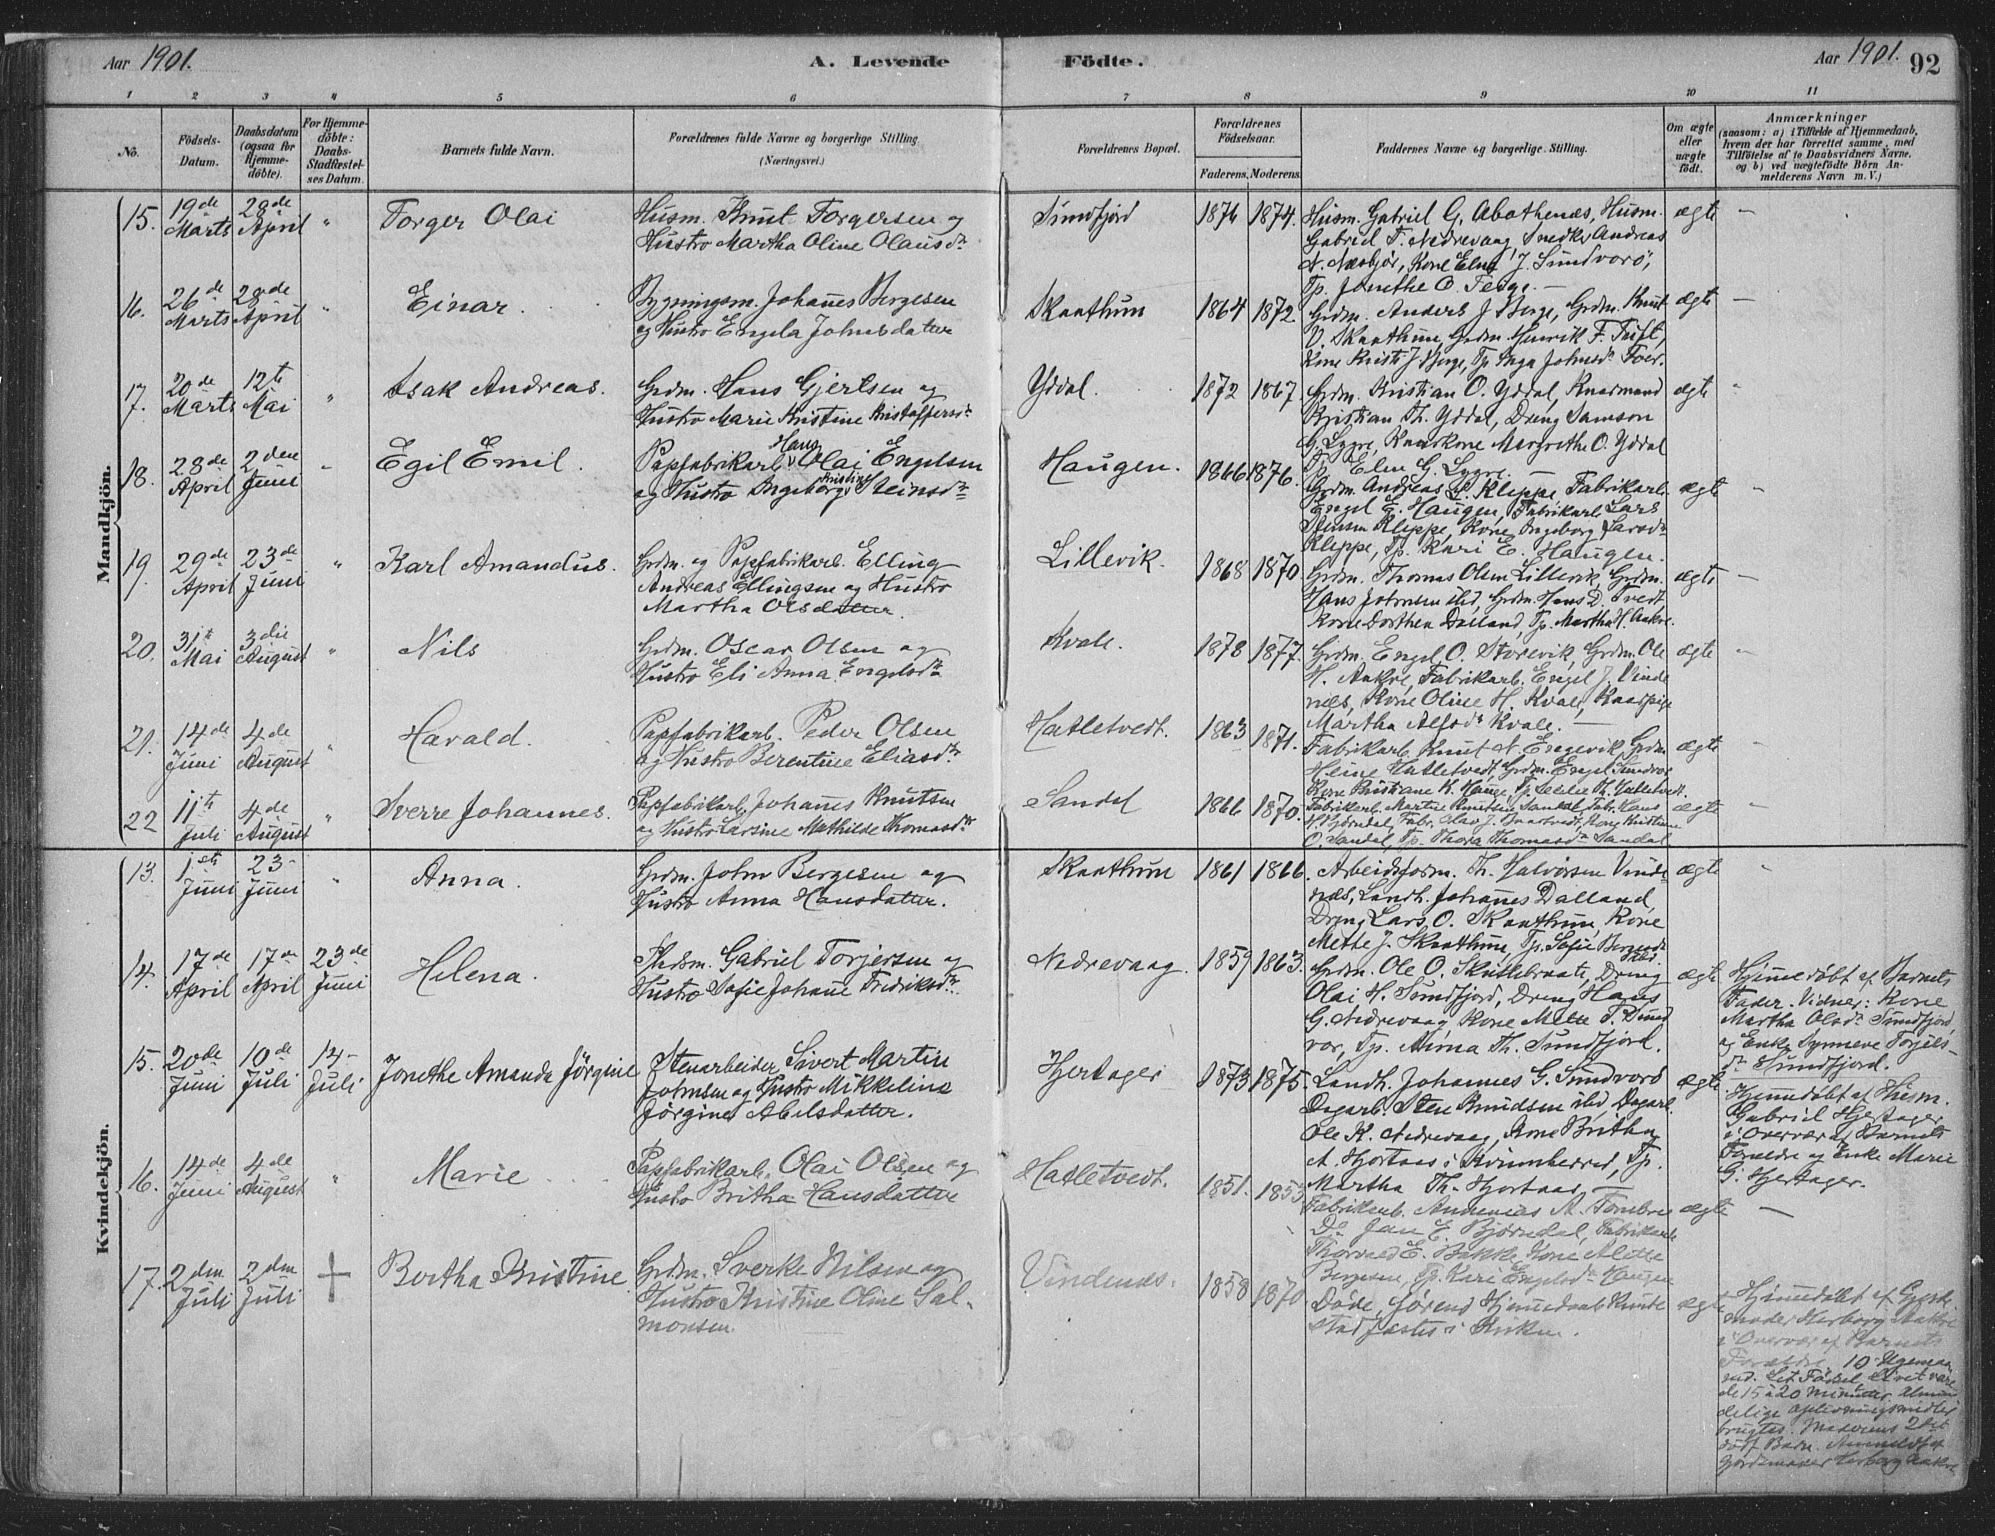 Aar 1901.
A. Levende
Födte.
Aar 1901.
92
1 2 3 4 5 6 7 8 9 10 11
No.
Födsels-
Datum.
Daabsdatum
(ogsaa for
Hjemme-
döbte).
For Hjemme-
döbte:
Daabs-
Stadfæstel-
ses Datum.
Barnets fulde Navn.
Forældrenes fulde Navne og borgerlige Stilling.
(Næringsvei.)
Forældrenes Bopæl.
Forældrenes
Födselsaar.
Faderens. Moderens.
Faddernes Navne og borgerlige Stilling.
Om ægte
eller
uægte
födt.
Anmærkninger
(saasom: a) i Tilfælde af Hjemmedaab,
hvem der har forrettet samme, med
Tilföielse af to Daabsvidners Navne,
og b) ved uægtefödte Börn An-
melderens Navn m. V.)
Mandkjön.
15. 19de Marts 28de April " Torger Olai
Husm. Knut Torgersen og
Hustro Martha Oline Olausdr
Sundfjord 1876 1874.
Husm. Gabriel G. Husm.
Gabriel T. Nedrevaag, Snedker Andreas
N. Kone J. Sundvord,
Tp. Jonethe O. —
ægte —
16. 26de Marts 28de April " Einar.
Bygningsm. Johañes Bergesen
og Hustro Engela Johnsdatter
Skaathun 1864 1872
Grdm. Anders J Berge, Grdm. Knut
V. Skaathun, Grdm. Henrik F. Tuft,
Kone J Berge, Tp. Inga Johnsdr
ægte —
17. 20de Marts 12te Mai " Isak Andreas.
Grdm. Hans Gjertsen og
Hustro Marie Kristine Kristoffersdr
Yddal. 1872 1867
Grdm. Kristian O. Yddal, Kaarmand
Kristian Th. Yddal, Dreng Samson
G. Lygre, Kaarkone Margrethe O. Yddal
Tp. Elen G. Lygre.
ægte "
18. 28de April 2den Juni " Egil Emil.
Papfabrikarb. Hans Olai Engelsen
og Hustro Ingeborg Kristine Steinsdr
Haugen. 1866 1876.
Grdm. Andreas L. Kleppe, Fabrikarb.
Engel E. Haugen, Fabrikarb. Lars
Kleppe, Kone Ingeborg Larsdr
Kleppe, Tp. Kari E. Haugen.
ægte —
19. 29de April 23de Juni " Karl Amandus.
Grdm. og Papfabrikarb. Elling
Andreas Ellingsen og Hustro
Martha Olsdatter.
Lillevik. 1868 1870
Grdm. Thomas Olsen Lillevik, Grdm.
Hans Johnsen ibd, Grdm. Hans D Tvedt,
Kone Dorthea Dalland, Tp. Martha H. Aakre.
ægte —
20. 31te Mai 3die August " Nils
Grdm. Oscar Olsen og
Hustro Eli Anna Engelsdr
Kvale. 1878 1877.
Grdm. Engel O. Storevik, Grdm. Ole
H. Aakre, Fabrikarb. Engel J. Vinde
næs, Kone Oline H. Kvale, Kaarpige
Martha Alfsdr Kvale. —
ægte —
21. 14de Juni 4de August " Harald.
Papfabrikarb. Peder Olsen
og Hustro Berentine Eliasdr
Hatletvedt. 1863 1871.
Fabrikarb. Knut N. Engevik, Grdm.
Heine Hatletvedt, Grdm. Engel Sundvor
Kone Kristiane K. Hauge, Tp. Cecilie Th. Hatletvedt.
ægte —
22 11te Juli 4de August " Sverre Johannes.
Papfabrikarb. Johañes Knutsen
og Hustro Larsine Mathilde Thomasdr
Sandal 1866 1870.
Fabrikarb. Martin Knutsen Sandal, Fabr. Hans
H. Bjørndal, Fabr. Olav J. Kone Kristine
O. Sandal, Tp. Thora Thomasdr Sandal
ægte "
Kvindekjön.
13. 1ste Juni 23- Juni " Anna.
Grdm. John Bergesen og
Hustro Anna Hansdatter.
Skaathun 1861 1866.
Arbeidsform. Th. Halvorsen Vinde-
næs, Landh. Johañes Dalland,
Dreng Lars O. Skaathun, Kone
Mette J. Skaathun, Tp. Sofie
ægte "
14. 17de April 17de April 23de Juni Helena.
Gabriel Torjersen og
Hustro Sofie Johane Fredriksdr
Nedrevaag. 1859 1863.
Grdm. Ole O. Skuttebraate, Dreng
Olai H. Sundfjord, Dreng Hans
G. Nedrevaag, Kone Mette T. Sund
vor, Tp. Anna Th. Sundfjord.
ægte
Hjemedøbt af Barnets
Fader. Vidner: Kone
Martha Olsdr Sundfjord,
og Enke Synneve Torjels-
dr Sundfjord.
15. 20de Juni 10de Juli 14- Juli Jonethe Amanda Jörgine
Stenarbeider Sivert Martin
Johnsen og Hustro Mikkeline
Jörgine Abelsdatter.
Hjertager 1873 1875.
Landh. Johannes G. Sundvord
Dagarb. Sten Knudsen ibd, Dagarb.
Ole K. Nedrevaag, Kone Britha
A. Hjortaas i Tp.
Martha Th. Hjortaas —
ægte
Hjemedøbt af Husm.
Gabriel Hjertager
i Overvær af Barnets
Forældre og Enke Marie
G. Hjertager.
16. 14de Juni 4de August " Marie
Papfabrikarb. Olai Olsen og
Hustro Britha Hansdatter
Hatletvedt. 1851. 1853
Fabrikarb. Annanias A. Tombre
Do Jan E. Bjørndal, Fabrikarb
Thorvald E. Bakke, Kone Alette
Bergesen, Tp. Kari Engelsdr Haugen
ægte —
17. 2den Juli 2den Juli + Bertha Kristine
Grdm. Sverke Nilsen og
Hustro Kristine Oline Sal-
monsen.
Vindenæs. 1858 1870
Døde, førend Hjemmedaab kunde
stadfæstes i Kirken.
ægte
Hjemmedøbt af Gjord-
moder Herborg Aakre
i Overvær af Barnets
Forældre. 10
Let Fødsel, Livet vare
de 15 à 20 Minuter, Almin
delige oplivningsmidler
brugtes. Moderens 2det
død Barn. Anmeldt af
Gjordemoder Herborg Aakre